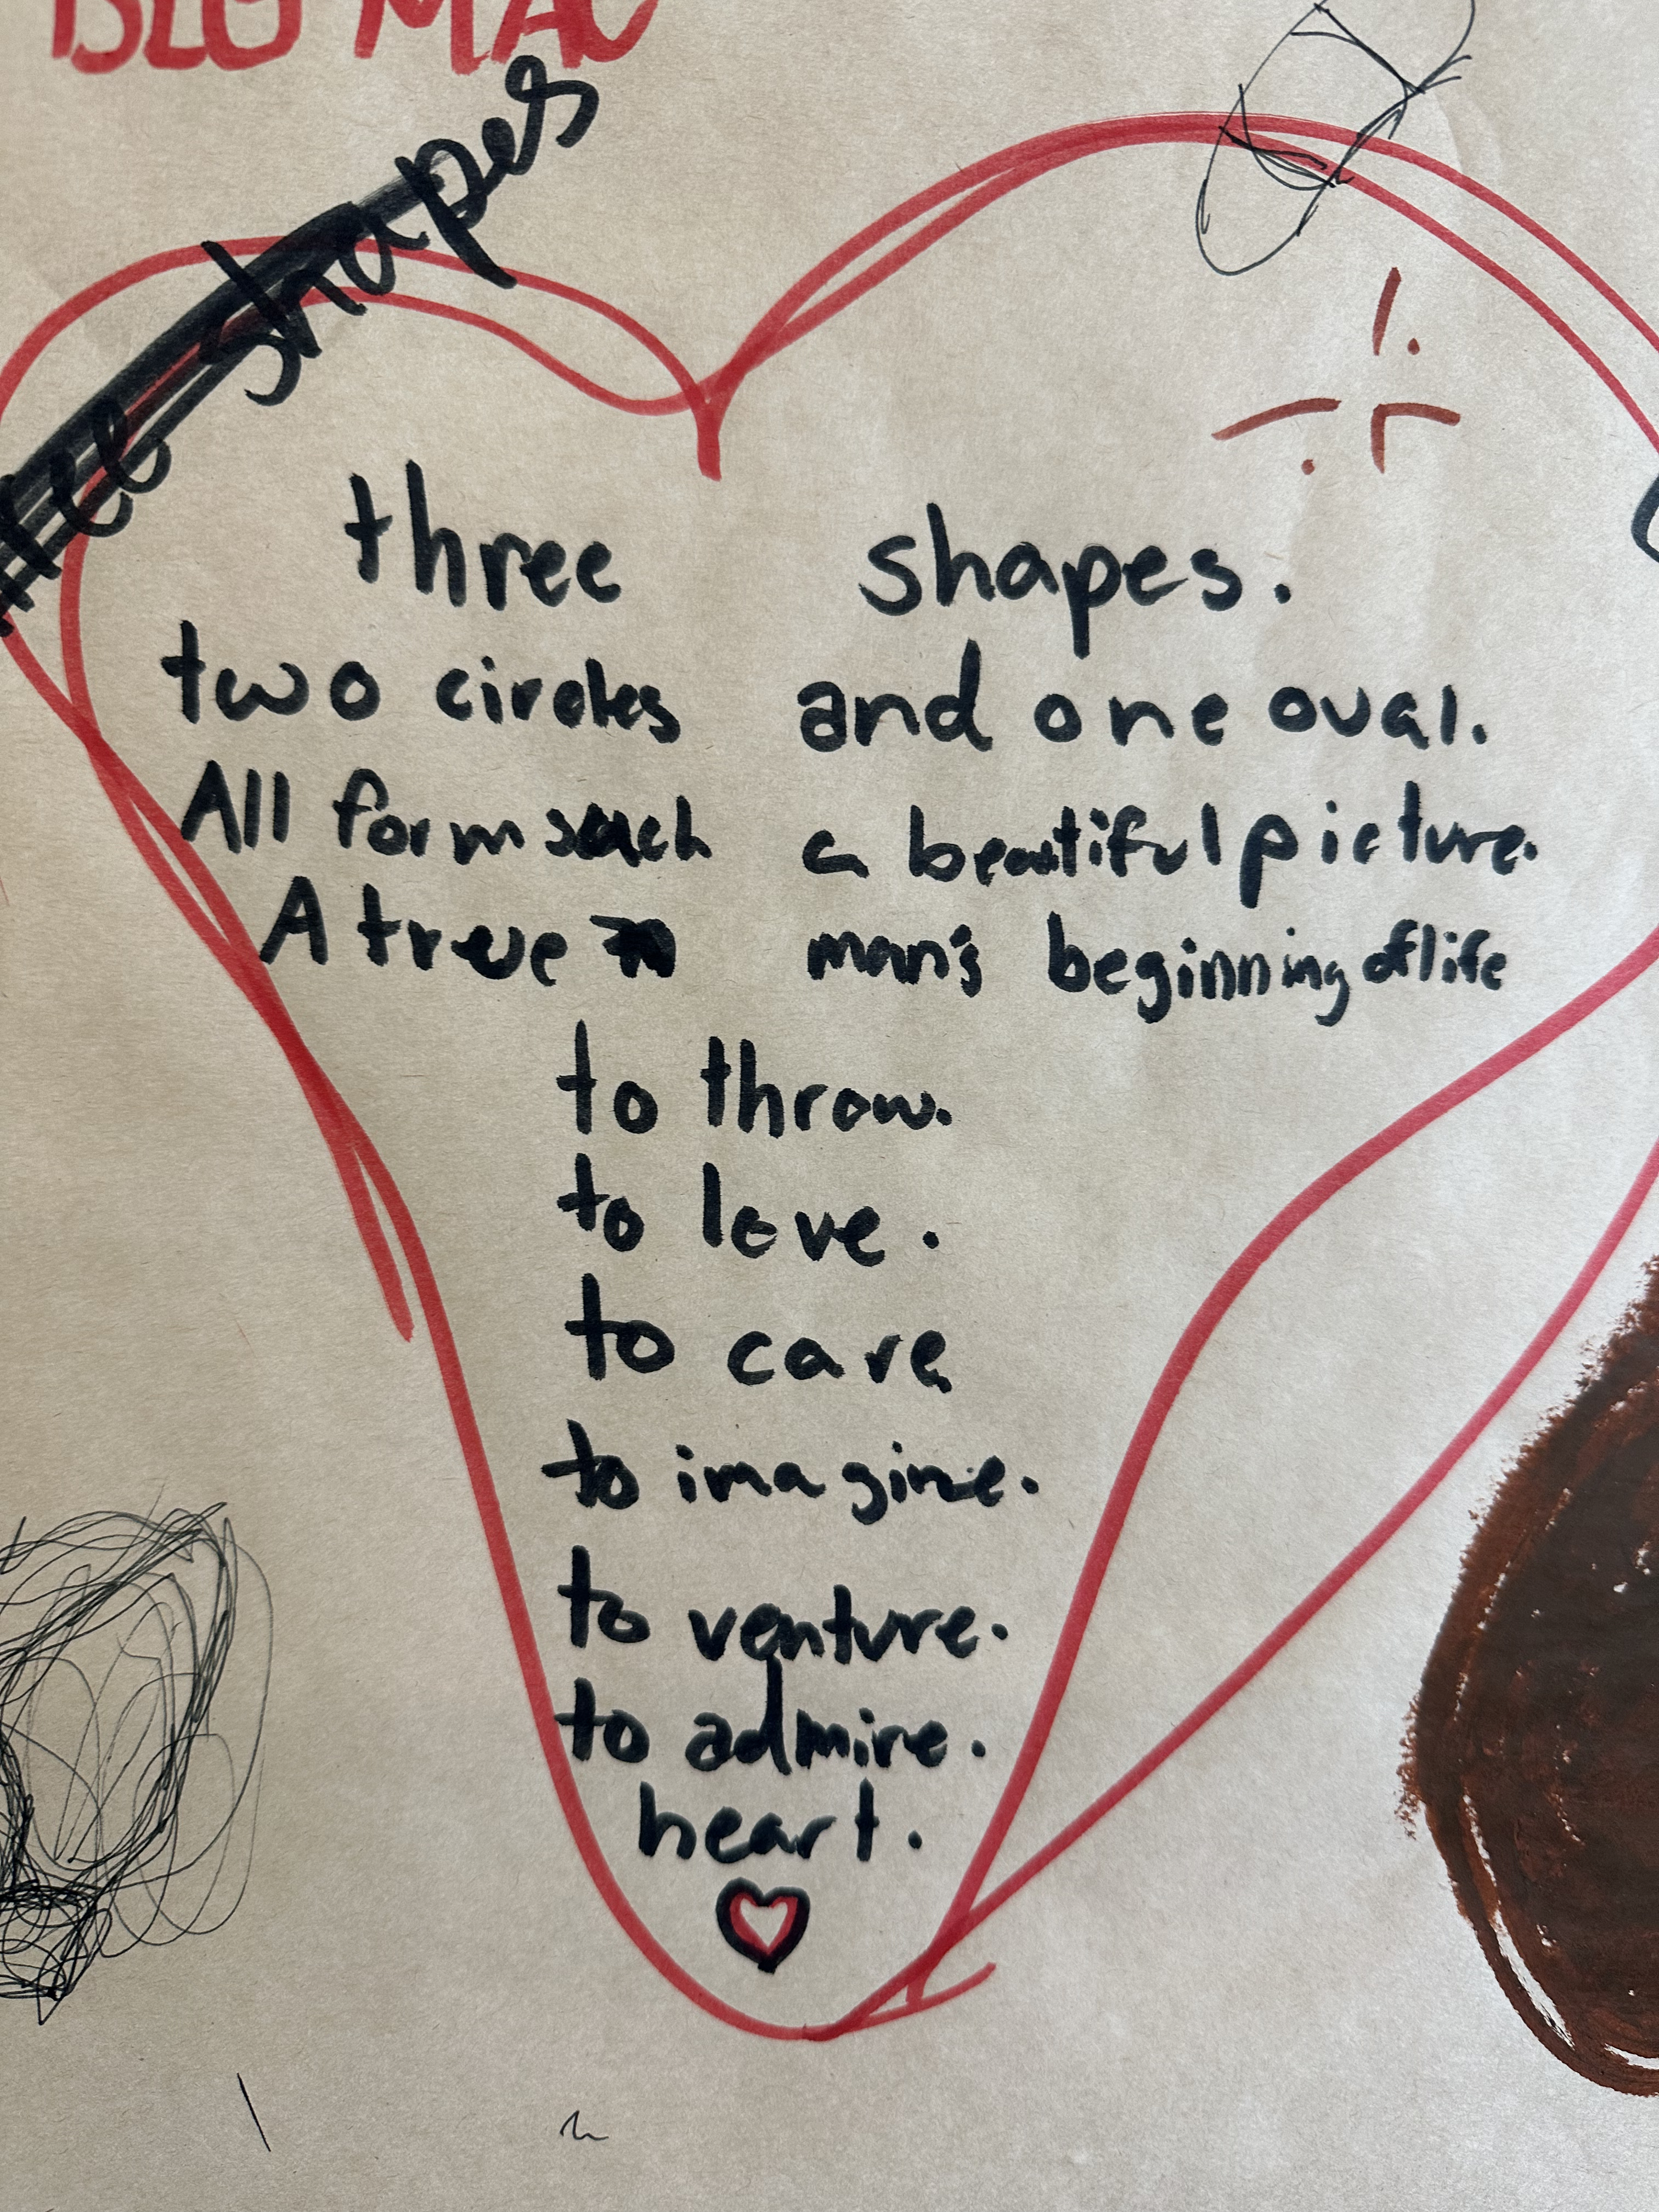 BIG MAC
shapes
three shapes.
two circles and one oval.
All forms such a beautiful picture.
A true man's beginning of life
to throw.
to love.
to care
to imagine.
to venture.
to admire.
heart.